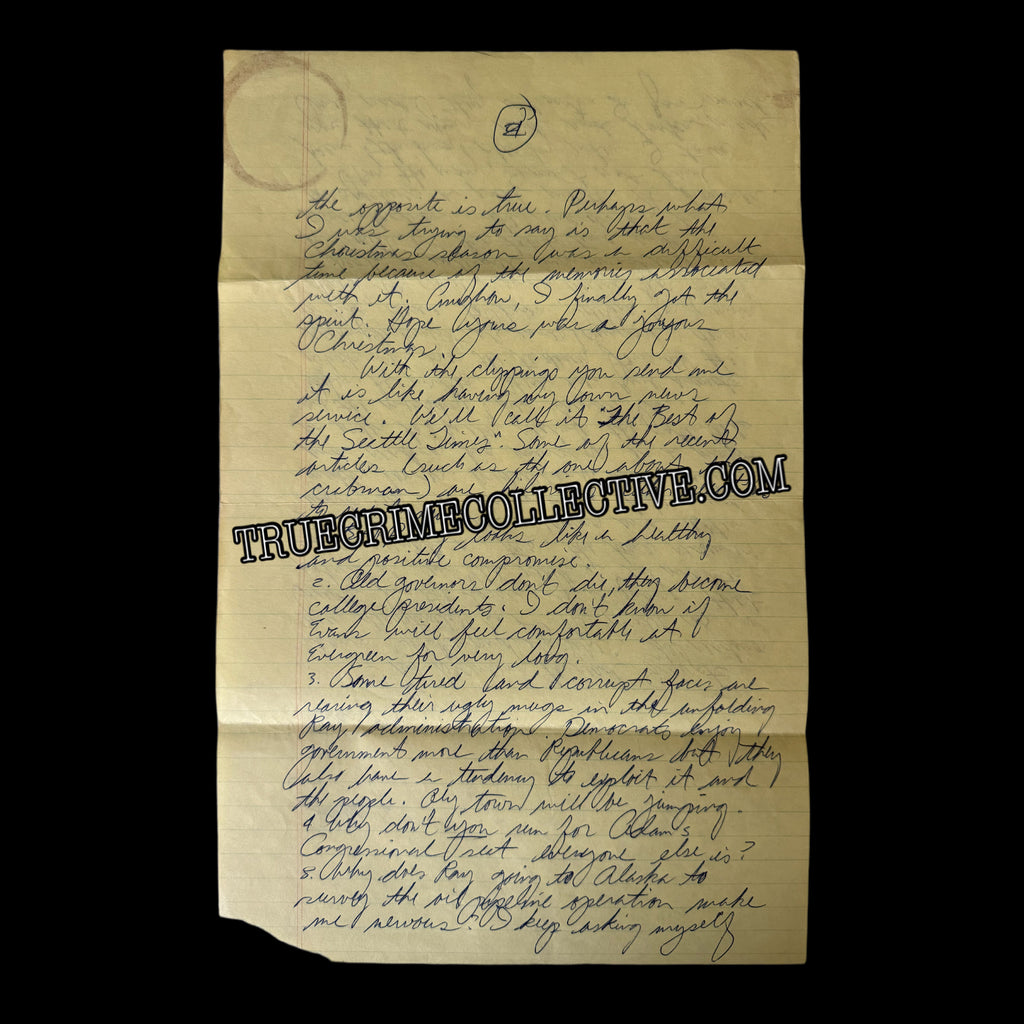 the opposite is true. Perhaps what
I was trying to say is that the
Christmas season was a difficult
time because of the memories associated
with it. Anyhow, I finally got the
spirit. Hope yours was a joyous
Christmas.
With the clippings you send me
it is like having my own news
service. We'll call it "The Best of
the Seattle Times". Some of the recent
articles (such as the one about the
crabman) are
TRUECRIMECOLLECTIVE.COM
looks like a healthy
and positive compromise.
2. Old governors don't die, they become
college presidents. I don't know if
Evans will feel comfortable at
Evergreen for very long.
3. Some tired and corrupt faces are
rearing their ugly mugs in the unfolding
Ray administration. Democrats enjoy
government more than Republicans but they
also have a tendency to exploit it and
the people. Oly town will be jumping.
4. Why don't you run for Adams
Congressional seat everyone else is?
5. Why does Ray going to Alaska to
survey the oil pipeline operation make
me nervous? I keep asking myself